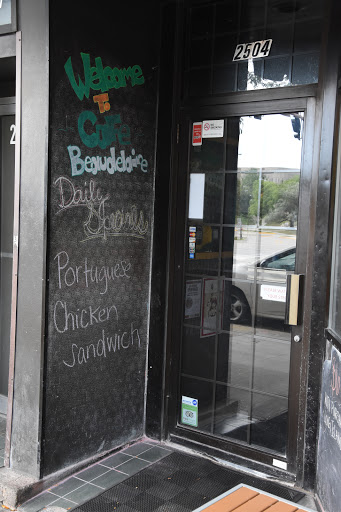 Welcome
To
Cafe
Beaudelaire
Daily
Specials
Portuguese
Chicken
Sandwich
2504